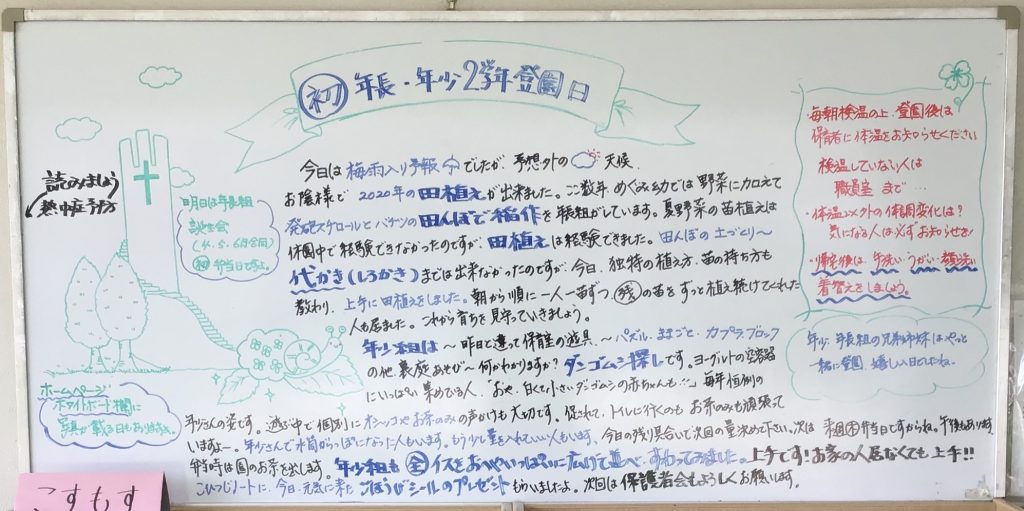 初 年長・年少2学年登園日
読みましょう
熱中症予防
明日は年長組
誕生会
(4.5.6月合同)
初 弁当日ですよ。
今日は梅雨入り予報でしたが、予想外の天候。
お陰様で 2020年の田植えが出来ました。ここ数年、めぐみ幼では野菜に加えて
発砲スチロールとバケツの田んぼで稲作を年長組がしています。夏野菜の苗植えは
休園中で経験できなかったのですが、田植えは経験できました。田んぼの土づくり〜
代かき(しろかき)までは出来なかったのですが、今日、独特の植え方、苗の持ち方も
教わり、上手に田植えをしました。朝から順に一人一苗ずつ、残の苗をずっと植え続けてくれた
人も居ました。これから育ちを見守っていきましょう。
年少組は〜昨日と違って保育室の遊具、〜パズル・ままごと・カプラ・ブロック
の他、裏庭あそび〜何かわかりますか?ダンゴムシ探しです。ヨーグルトの空容器
にいっぱい集めている人、「おや、白くて小さいダンゴムシの赤ちゃんも…」毎年恒例の
年少さんの姿です。遊ぶ中で個別にオシッコやお茶のみの声かけも大切です。促されて、トイレに行くのもお茶のみも頑張って
いますよー。年少さんで水筒からっぽになった人もいます。もう少し量を入れていい人もいます。今日の残り具合いで次回の量決めて下さい。次は 弁当日ですからね。午後もあります。
弁当時は園のお茶を出します。年少組も全イスをおへやいっぱいに広げて並べて、すわってみました。上手です!お家の人居なくても上手!!
こひつじノートに、今日、元気に来たごほうびシールのプレゼントもらいましたよ。次回は保護者会もよろしくお願いします。
・毎朝検温の上、登園後は
保育者に体温をお知らせください
検温していない人は
職員室まで…
・体温以外の体調変化は?
気になる人は必ずお知らせを!
・帰宅後は、手洗い・うがい・顔洗い
着替えをしましょう。
年少・年長組の兄弟姉妹はやっと
一緒に登園、嬉しい日でしたね。
ホームページ
ホワイトボード欄に
写真が載る日もあります。
こすもす